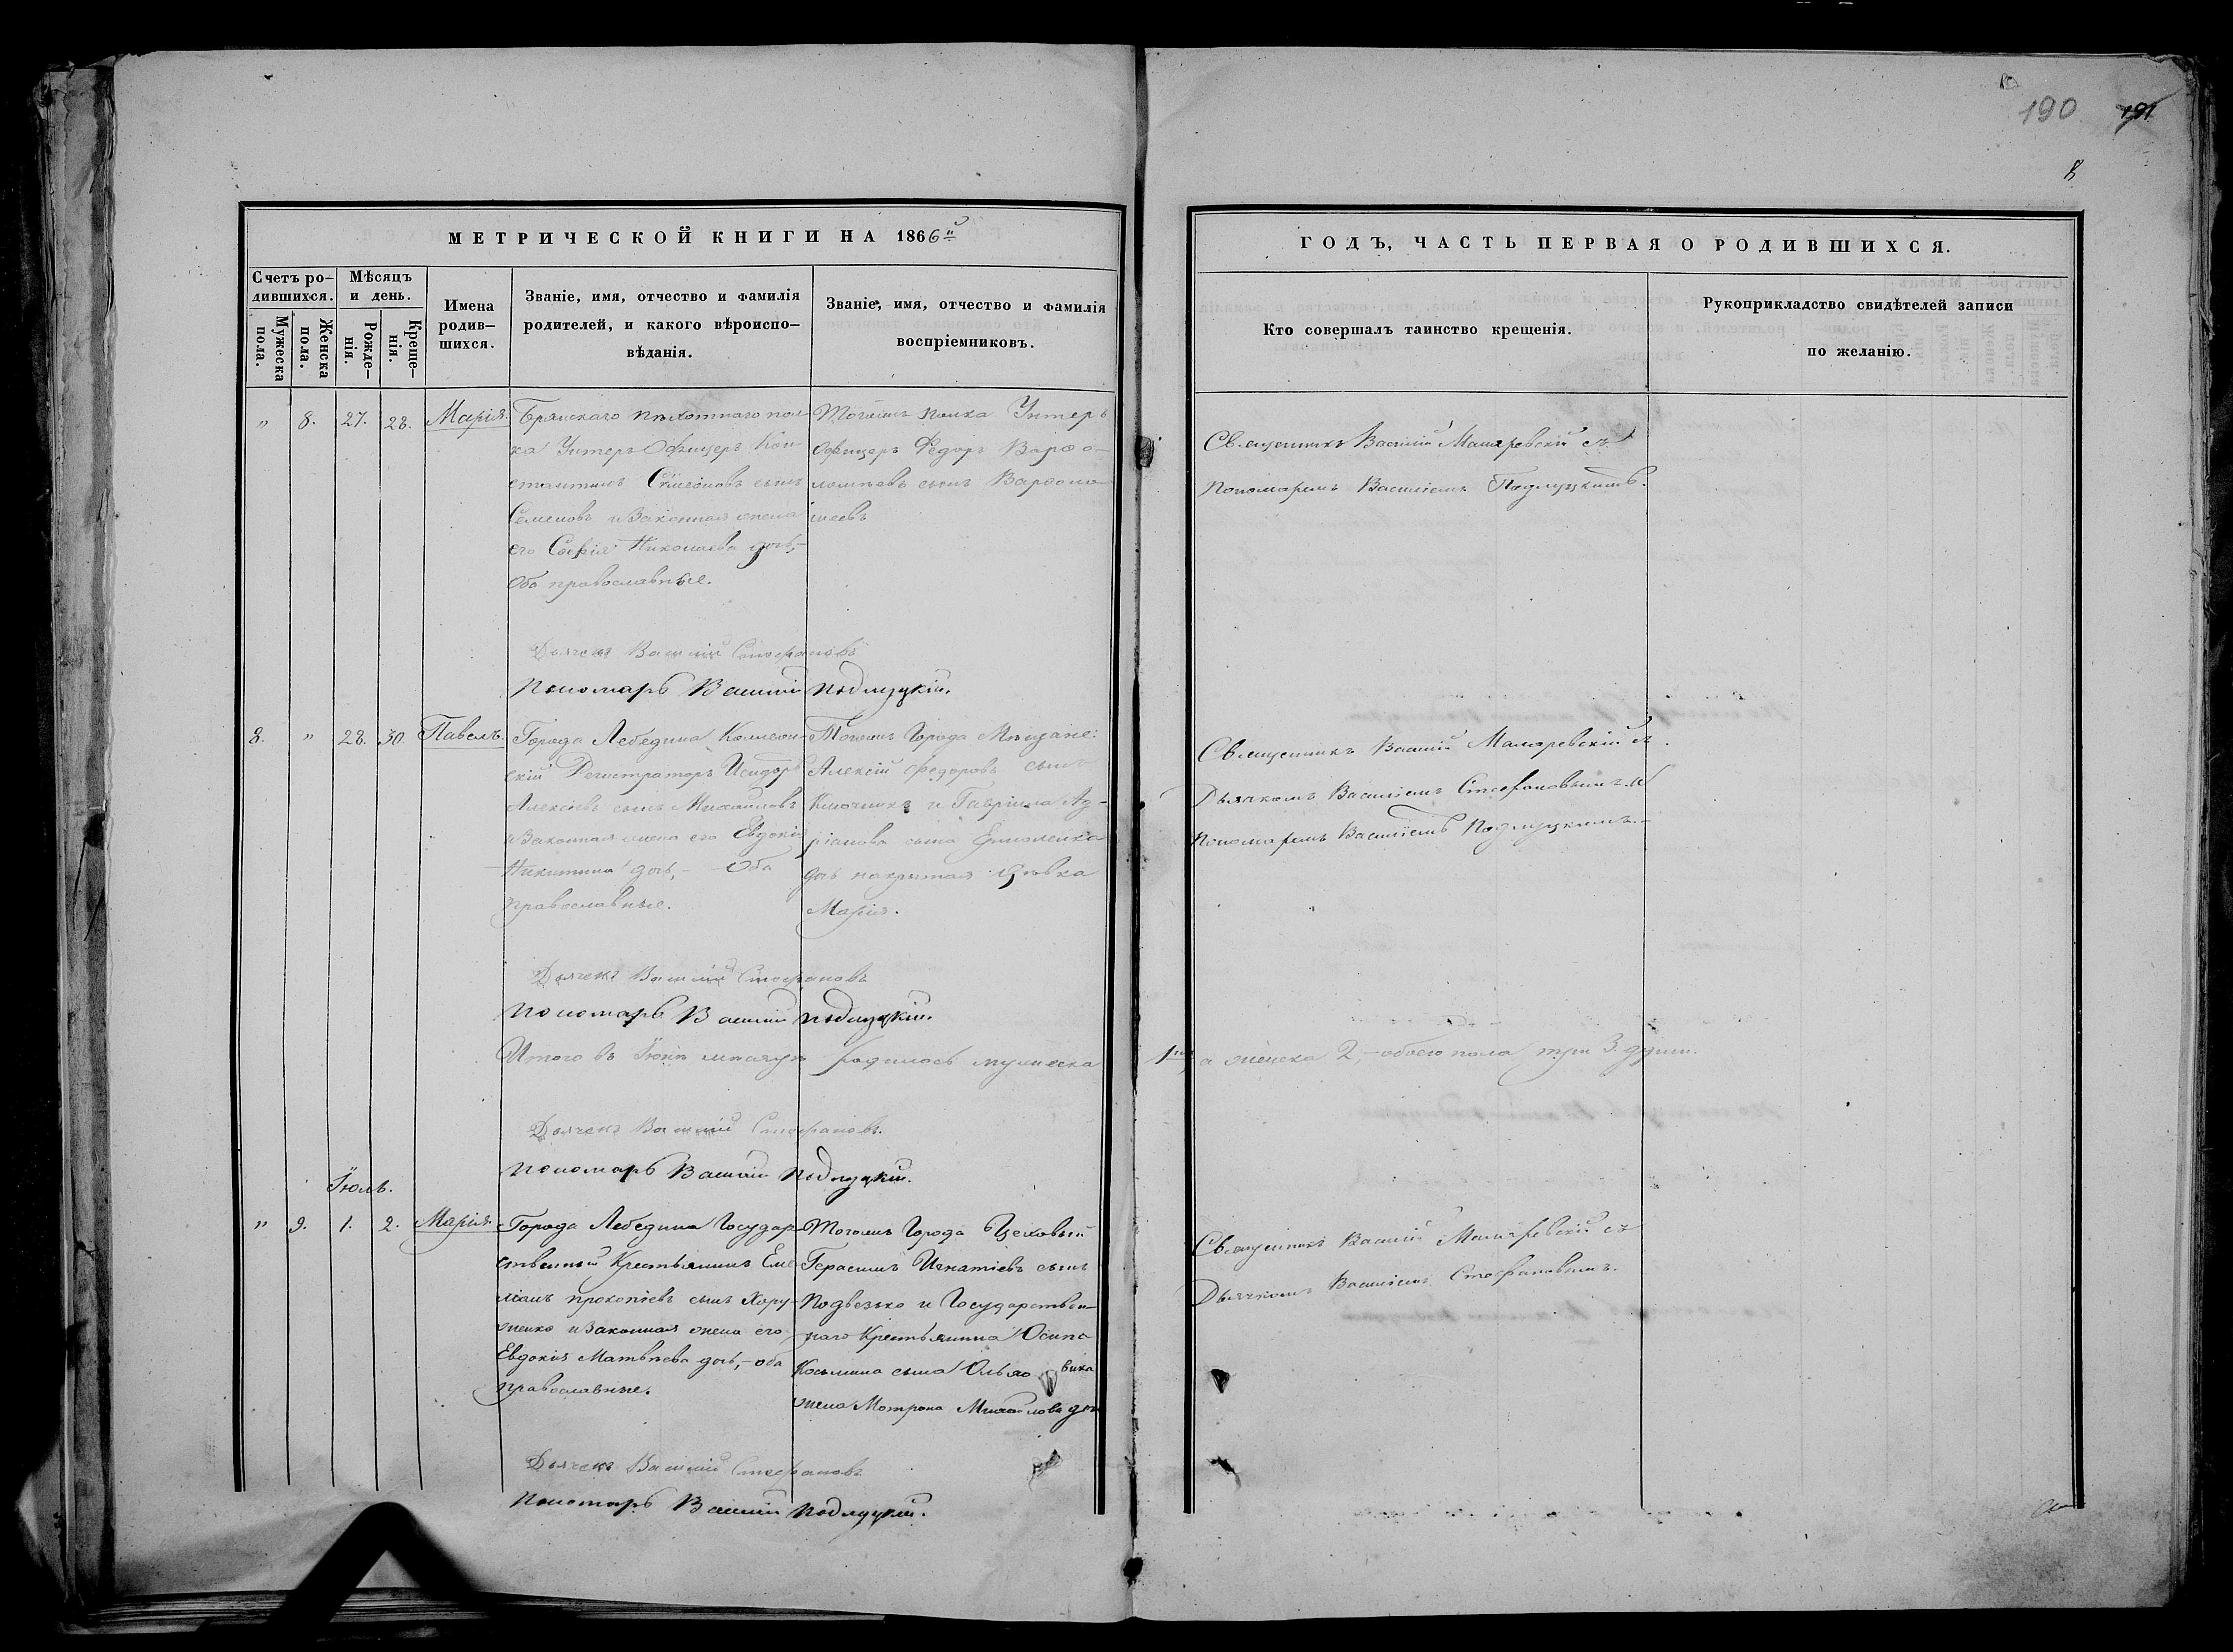 190 191
8
МЕТРИЧЕСКОЙ КНИГИ НА 1866й
Счетъ родившихся.
Мужеска пола.
Женска пола.
Мѣсяцъ и день.
Рожденія.
Крещенія.
Имена родившихся.
Званіе, имя, отчество и фамилія
родителей, и какого вѣроиспо-
вѣданія.
Званіе, имя, отчество и фамилія
воспріемниковъ.
" 8. 27. 28. Марія.
Брянскаго пѣхотнаго пол-
ка Унтеръ Офицеръ Кон-
стантинъ Симеоновъ сынъ
Семеновъ и Законная жена
его Софія Николаева дочь,-
Оба православные.
Тогожъ полка Унтеръ
Офицеръ Федоръ Варѳо-
ломѣевъ сынъ Варѳоло-
меевъ
Дьячекъ Василій Стефановъ
Пономарь Василій Подлуцкій.
8. " 28. 30. Павелъ.
Города Лебедина Коллеж-
скій Регистраторъ Исидоръ
Алексѣевъ сынъ Михайловъ
и Законная жена его Евдокія
Никитина дочь,- Оба
православные.
Тогожъ Города Мѣщане:
Алексій Федоровъ сынъ
Ключникъ и Гавріила Ад-
ріанова сына Ермоленка
дочь накрытая дѣвка
Марія.
Дьячекъ Василій Стефановъ
Пономарь Василій Подлуцкій.
Итого въ Іюнѣ мѣсяцѣ родилось мужеска
Дьячекъ Василій Стефановъ.
Пономарь Василій Подлуцкій.
Іюль.
" 9. 1. 2. Марія.
Города Лебедина Государ-
ственный Крестьянинъ Еме-
ліанъ Прокопіевъ сынъ Хору-
женко и Законная жена его
Евдокія Матвѣева дочь,- оба
православные.
Тогожъ Города Цеховый
Герасимъ Игнатіевъ сынъ
Подвезько и Государствен-
наго Крестьянина Осипа
Косьмина сына
жена Мотрона Михайлова доч
Дьячекъ Василій Стефановъ
Пономарь Василій Подлуцкій.
ГОДЪ, ЧАСТЬ ПЕРВАЯ О РОДИВШИХСЯ.
Кто совершалъ таинство крещенія.
Рукоприкладство свидѣтелей записи
по желанію.
Священникъ Василій Маляревскій съ
Пономаремъ Василіемъ Подлуцкимъ.
Священникъ Василій Маляревскій съ
Дьячкомъ Василіемъ Стефановымъ и
Пономаремъ Василіемъ Подлуцкимъ.-
1нъ, а женска 2,- обоего пола три 3. души.
Священникъ Василій Маляревскій съ
Дьячкомъ Василіемъ Стефановымъ.